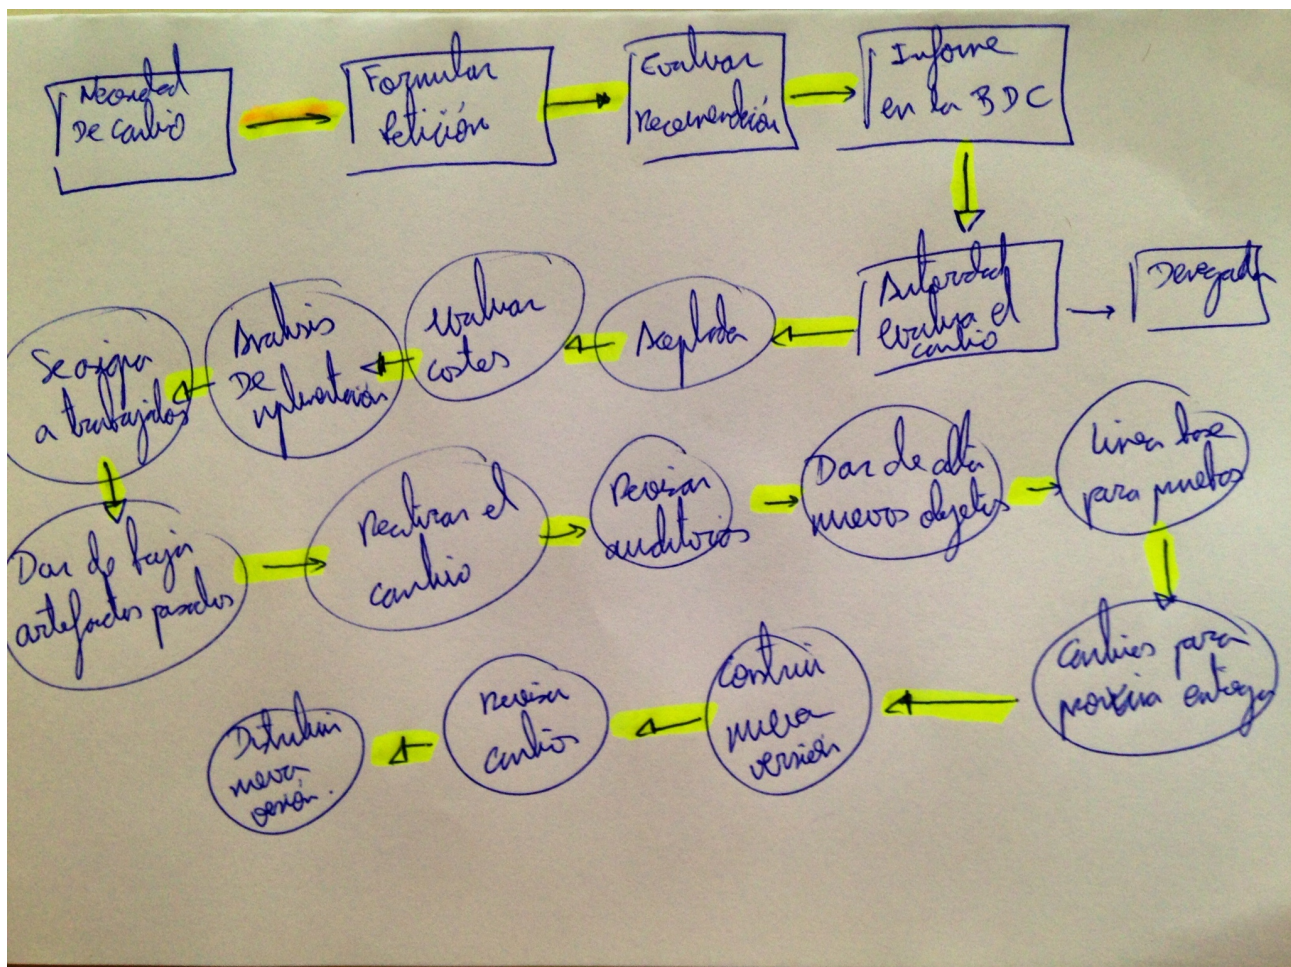 Necesidad
De cambio
Formular
Petición
Evaluar
Recomendación
Informe
en la BDC
Autoridad
evalua el
cambio
Denegada
Aceptada
Evaluar
costes
Analisis
De
implementación
Se asigna
a trabajados
Dar de baja
artefactos pasados
Realizar el
cambio
Revisar
auditorias
Dar de alta
nuevos objetos
Linea base
para pruebas
Cambios para
proxima entrega
Construir
nueva
versión
Revisar
cambios
Distribuir
nueva
versión.